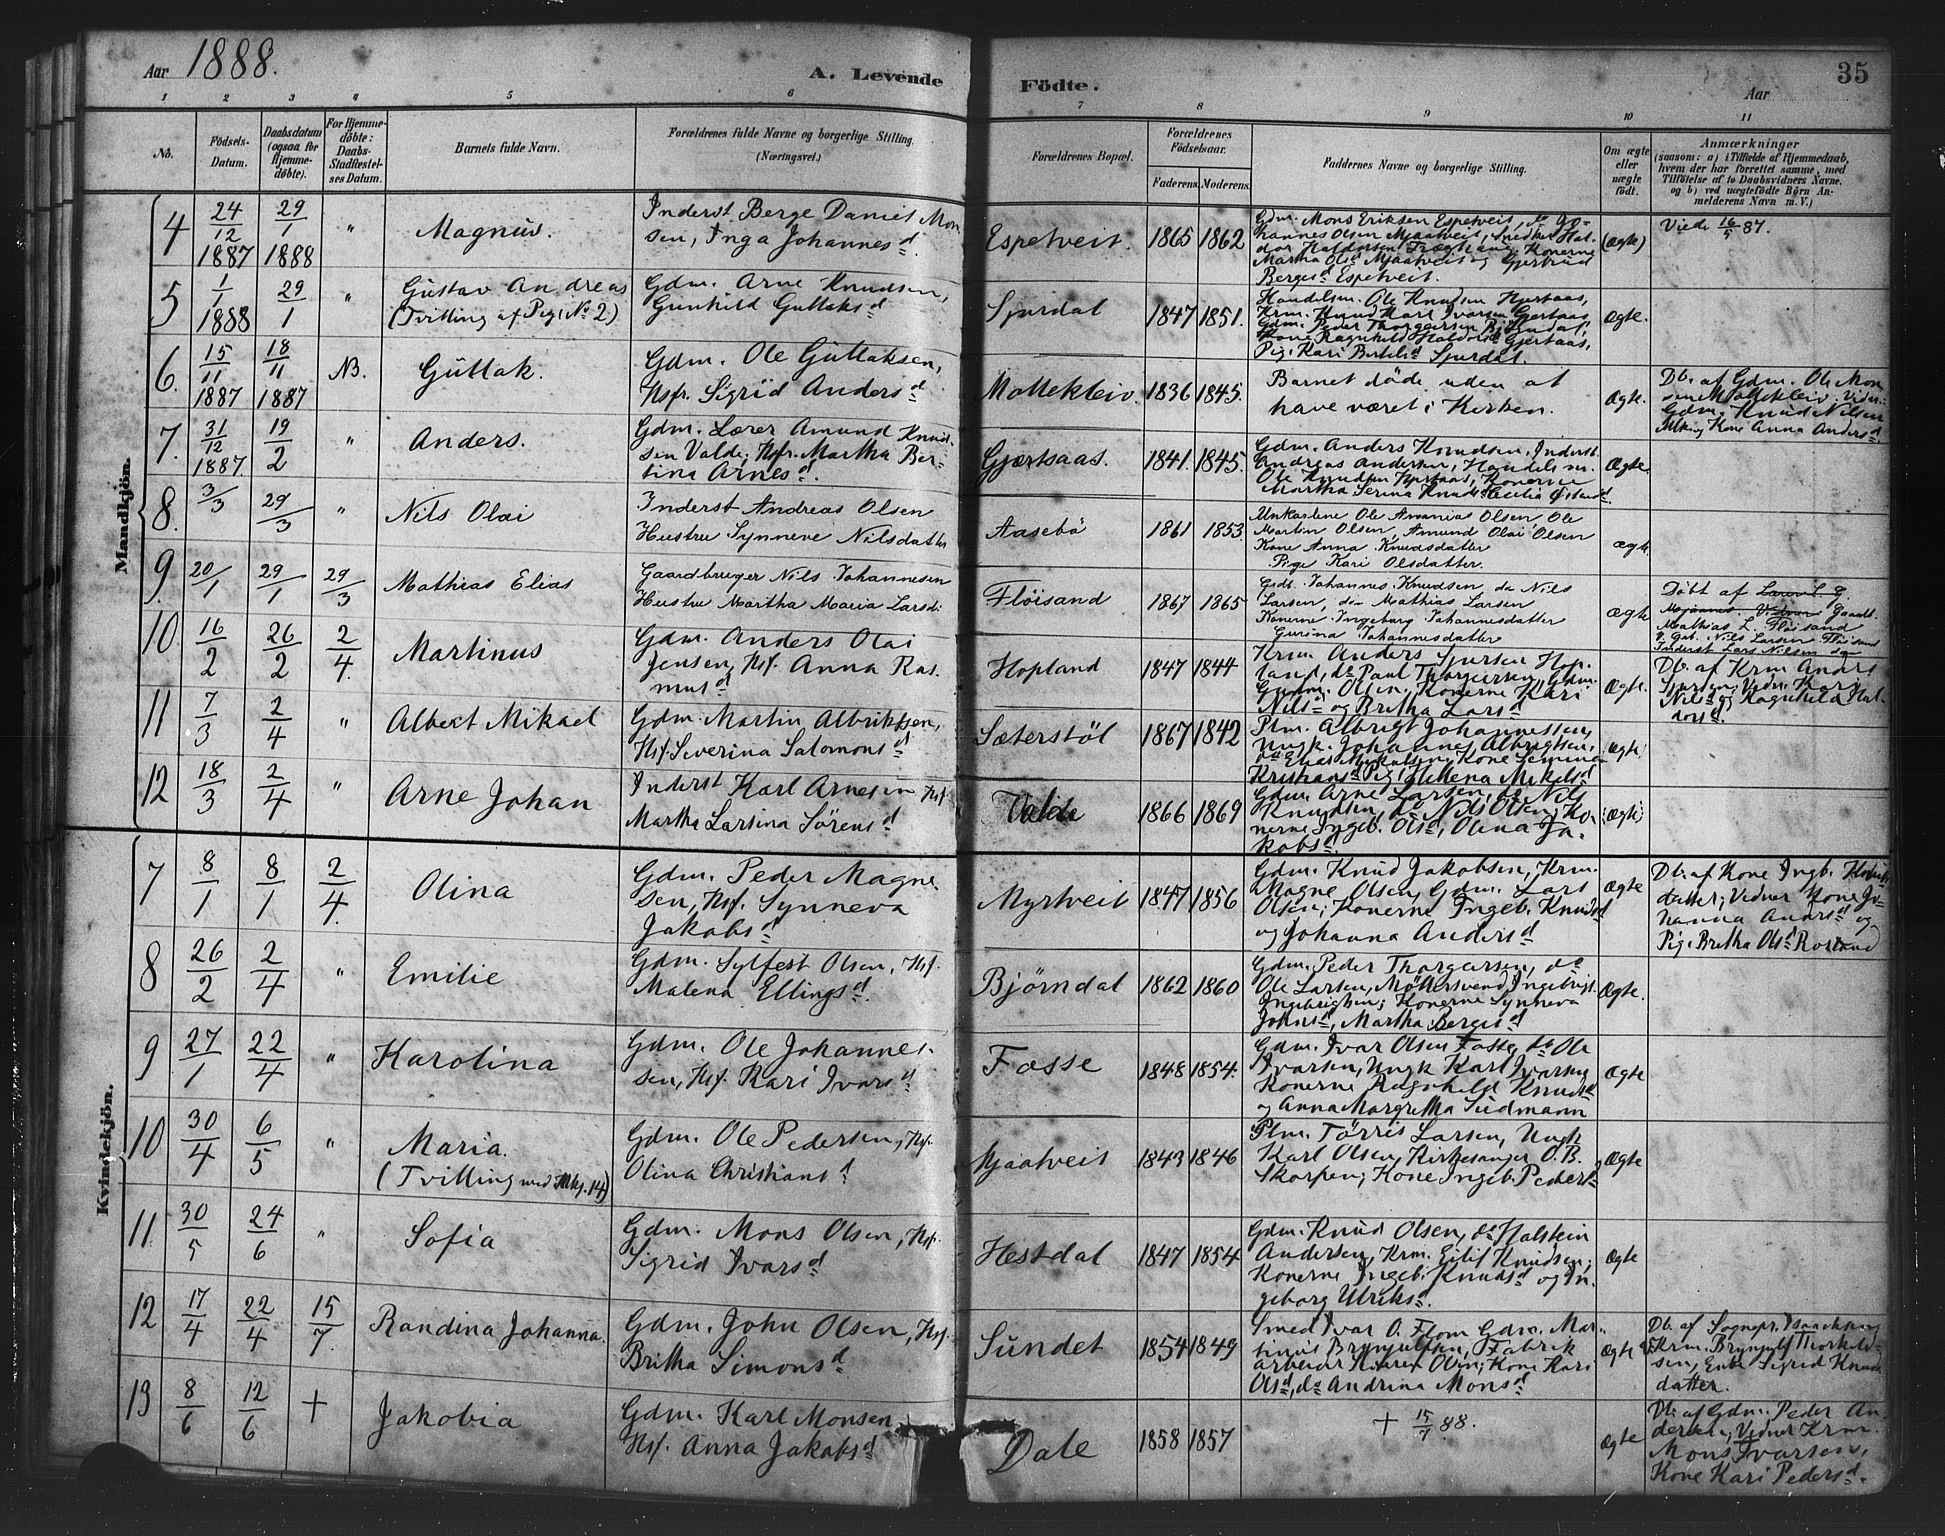 Aar 1888.
A. Levende
Födte.
Aar
35
1 2 3 4 5 6 7 8 9 10 11
No.
Födsels-Datum.
Daabsdatum (ogsaa for Hjemmedöbte).
For Hjemmedöbte: Daabs-Stadfæstelses Datum.
Barnets fulde Navn.
Forældrenes fulde Navne og borgerlige Stilling. (Næringsvei.)
Forældrenes Bopæl.
Forældrenes Födselsaar.
Faderens. Moderens.
Faddernes Navne og borgerlige Stilling.
Om ægte eller uægte födt.
Anmærkninger
(saasom: a) i Tilfælde af Hjemmedaab,
hvem der har forrettet samme, med
Tilföielse af to Daabsvidners Navne,
og b) ved uægtefödte Börn An-
melderens Navn m. V.)
Mandkjön.
4 24/12 1887 29/1 1888 " Magnus.
Inderst Berge Daniel Mon
sen, Inga Johannesd
Espetveit. 1865 1862
Gdm. Mons Eriksen Espetveit, do Jo-
hannes Olsen Mjaatveit, Snedker Hal-
dor Haldorsen, Konerne
Martha Olsd Mjaatveit og Gjertrud
Bergesd Espetveit.
(Ægte) Viede 16/5 87.
5 1/1 1888 29/1 " Gustav Andreas
(Tvilling af Pige No 2)
Gdm. Arne Knudsen,
Gunhild Guttaksd
Sjurdal 1847 1851.
Handelsm. Ole Knudsen Hjertaas,
Krm. Knud Karl Ivarsen Gjertaas
Gdm. Peder Thorgersen Björndal;
Kone Ragnhild Haldorsd Gjertaas,
Pige Kari Bertelsd Sjurdal.
Ægte.
6. 15/11 1887 18/11 1887 NB. Guttak.
Gdm. Ole Guttaksen,
Hsfr. Sigrid Andersd
Mollekleiv. 1836 1845.
Barnet döde uden at
have været i Kirken.
Ægte.
Db. af Gdm. Ole Mon
sen Mollekleiv. Vidner:
Gdm. Knud Nilsen
Kone Anna Andersd
7. 31/12 1887. 19/2 " Anders.
Gdm. Lærer Amund Knud-
sen Valde; Hsfr. Martha Ber-
tina Arnesd.
Gjertsaas. 1841. 1845.
Gdm. Anders Knudsen, Inderst
Andreas Andersen, Handelsm.
Ole Knudsen Hjertaas, Konerne
Martha Serina Knudsd
Ægte.
8. 3/3 29/3 " Nils Olai
Inderst Andreas Olsen
Hustru Synneve Nilsdatter
Aasebö 1861 1853.
Unkarlene Ole Ananias Olsen, Ole
Martin Olsen, Amund Olai Olsen
Kone Anna Knudsdatter
Pige Kari Olsdatter.
ægte
9. 20/1 29/1 29/3 Mathias Elias
Gaardbruger Nils Johannesen
Hustru Martha Maria Larsd.
Flöisand 1867 1865
Grdb. Johannes Knudsen do Nils
Larsen, do Mathias Larsen
Konerne Ingeborg Johannesdatter
Gurina Johannesdatter
ægte
Döbt af
Gaardb.
Mathias L. Flöisand
Nils Larsen Flöisand
Inderst Lars Nilsen do
10. 16/2 26/2 2/4. Martinus
Gdm. Anders Olai
Jensen, Hsf. Anna Ras
musd
Hopland 1847 1844
Krm. Anders Sjursen Hop-
land, do Paul Thorgersen, Gdm.
Gudm. Olsen, Konerne Kari
Nilsd og Britha Larsd
Ægte.
Db. af Krm Anders
Sjursen; Vidn. Kari
Nilsd og Ragnhild Hal-
dorsd.
11 7/3 2/4 " Albert Mikael
Gdm. Martin Albriktsen,
Hsf. Severina Salomonsd
Sæterstöl 1867 1842
Plm. Albrigt Johannessen,
Ungk. Johannes Albrigtsen,
do Elias Mikalsen, Kone Severina
Kristiansd Pige Hellena Mikelsd
Ægte
12 18/3 2/4 " Arne Johan
Inderst Karl Arnesen Hsf.
Martha Larsina Sörensd
Valde 1866 1869
Gdm. Arne Larsen, do Nils
Knudsen, do Nils Olsen; Ko-
nerne Ingeb. Olsd, Olina Ja-
kobsd.
(Ægte)
Kvindekjön.
7 8/1 8/1 2/4. Olina
Gdm. Peder Magne
sen, Hsf. Synneva
Jakobsd
Myrtveit 1847 1856
Gdm. Knud Jakobsen, Krm.
Magne Olsen, Gdm. Lars
Olsen; Konerne Ingeb. Knudsd
og Johanna Andersd
Ægte
Db. af Kone Ingb.
datter; Vidner Kone Jo-
hanna Andersd og
Pige Britha Olsd Rosland
8 26/2 2/4 " Emilie
Gdm. Sylfest Olsen, Hsf.
Malena Ellingsd.
Björndal 1862 1860
Gdm. Peder Thorgersen, do
Ole Larsen, Möllersvend Ingebrigt
Ingebrigtsen; Konerne Synneva
Johnsd, Martha Bergesd
Ægte.
9 27/1 22/4 " Karolina
Gdm. Ole Johannes-
sen, Hsf. Kari Ivarsd
Fosse 1848 1854.
Gdm. Ivar Olsen Fosse, do Ole
Ivarsen, Ungk Karl Ivarsen
Konerne Ragnhild Knudsd
og Anna Margretha Sudmann
Ægte
10 30/4 6/5 " Maria.
(Tvilling med Mkj. 14)
Gdm. Ole Pedersen, Hsf.
Olina Christiansd
Mjaatveit 1843 1846
Plm. Törris Larsen, Ungk
Karl Olsen, Kirkesanger O. B.
Skorpen; Kone Ingeb. Pedersd
Ægte
11. 30/5 24/6 " Sofia
Gdm. Mons Olsen, Hsf.
Sigrid Ivarsd
Hestdal 1847 1854
Gdm. Knud Olsen, do Holstein
Andersen, Krm. Eilif Knudsen;
Konerne Ingeb. Knudsd og In-
geborg Ulriksd.
Ægte
12 17/4 22/4 15/7. Randina Johanna.
Gdm. John Olsen, Hsf.
Britha Simonsd
Sundet 1854 1849
Smed Ivar O. Flom Gdm. Mar-
tinus Brynjulfsen, Fabrik
arbeider Olsen; Kone Kari
Olsd, do Andrina Monsd
Ægte
Db. af Sognepr.
Krm. Brynjulf Thorkild-
sen, Enke Sigrid Knuds
datter.
13 8/6 12/6 + Jakobia
Gdm. Karl Monsen
Hsf. Anna Jakobsd
Dale 1858 1857
+ 15/7 88.
Ægte
Db. af Gdm. Peder An-
dersen, Vidner Krm.
Mons Ivarsen,
Kone Kari Pedersd.